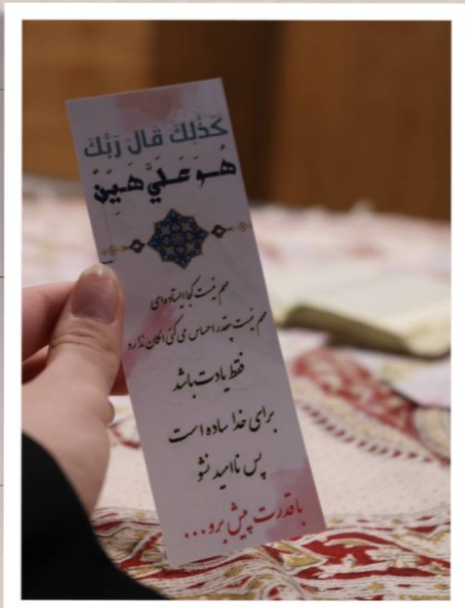 كَذَٰلِكَ قَالَ رَبُّكَ
هُوَ عَلَيَّ هَيِّنٌ
مهم نیست کجا ایستاده‌ای
مهم نیست چقدر احساس می‌کنی امکان نداره
فقط یادت باشد
برای خدا ساده است
پس ناامید نشو
باقدرت پیش برو...